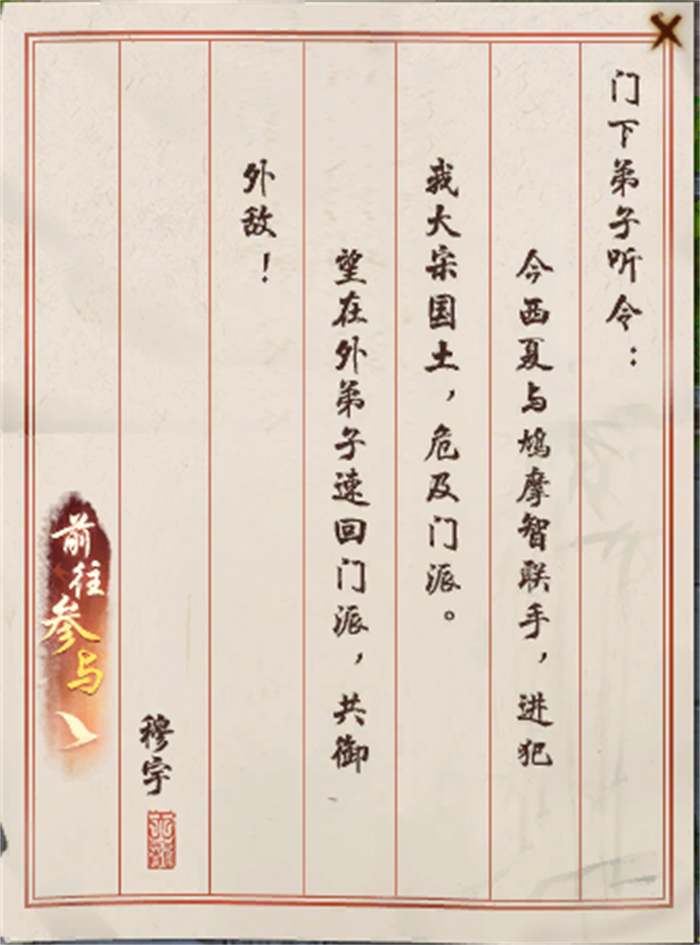 门下弟子听令：
今西夏与鸠摩智联手，进犯
我大宋国土，危及门派。
望在外弟子速回门派，共御
外敌！
穆宇
前往参与